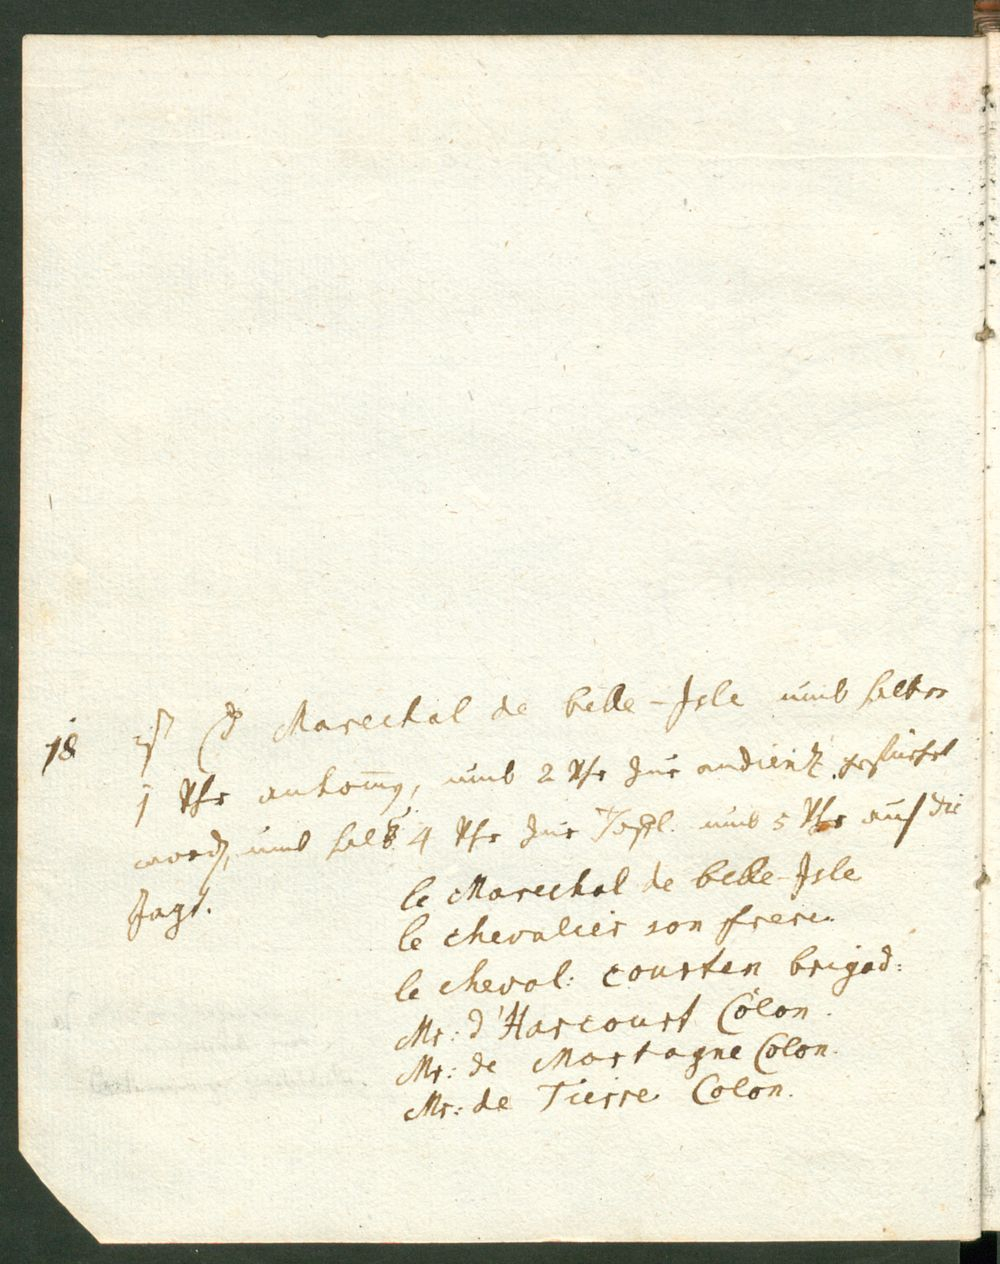 18 ist der Marechal de belle-Isle umb halber
1 Uhr ankom̅en, umb 2 Uhr zur audientz gefuͤhrt
word, umb halb 4 Uhr zur Taffl. umb 5 Uhr auf die
Jagt.
le Marechal de belle-Isle
le chevalier son frere.
le cheval: courten brigad:
Mr: d'Harcourt Colon.
Mr: de Mortagne Colon.
Mr: de Tierre Colon.